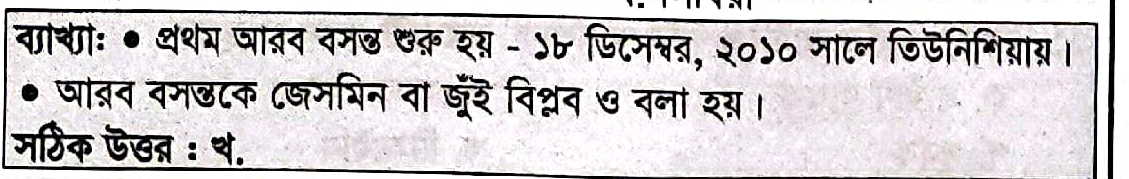 ব্যাখ্যা: ● প্রথম আরব বসন্ত শুরু হয় - ১৮ ডিসেম্বর, ২০১০ সালে তিউনিশিয়ায়।
● আরব বসন্তকে জেসমিন বা জুঁই বিপ্লব ও বলা হয়।
সঠিক উত্তর : খ.